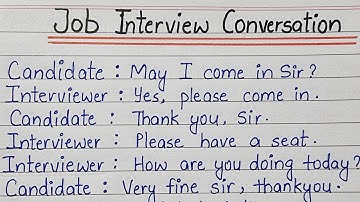 Job Interview Conversation
Candidate : May I come in Sir?
Interviewer : Yes, please come in.
Candidate : Thank you, Sir.
Interviewer : Please have a seat.
Interviewer : How are you doing today?
Candidate : Very fine sir, thankyou.